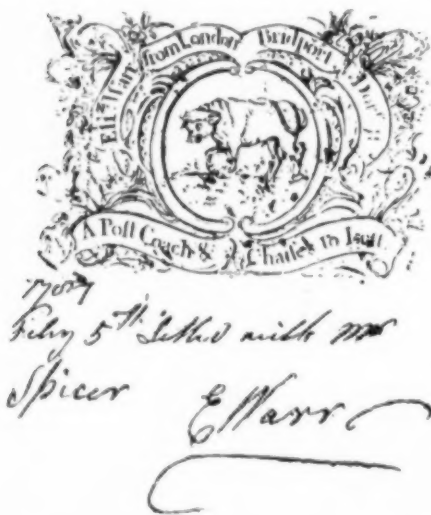 Eliz. Warr from London Bridport Dorset
A Post Coach & Chaises to Lett
Feby 5th Settled with Mr
Spicer
E Warr